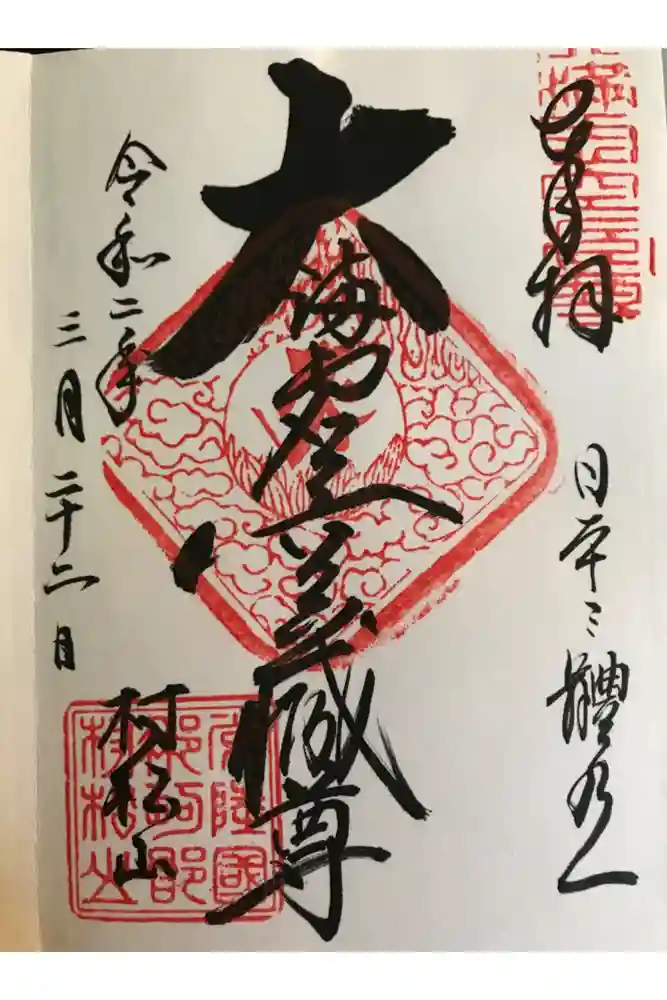 奉拝
日本三體乃一
大満虚空蔵尊
令和二年
三月二十二日
村松山
常陸國
那珂郡
村松山